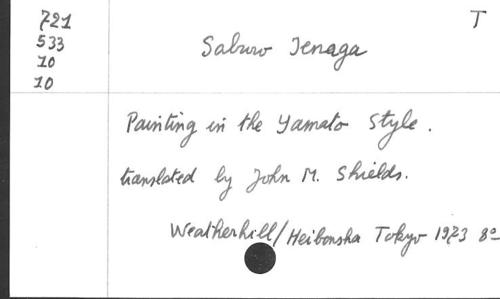 721 T
533 Saburo Ienaga
10
10
Painting in the Yamato Style.
translated by John M. Shields.
Weatherhill/Heibonsha Tokyo 1973 8º